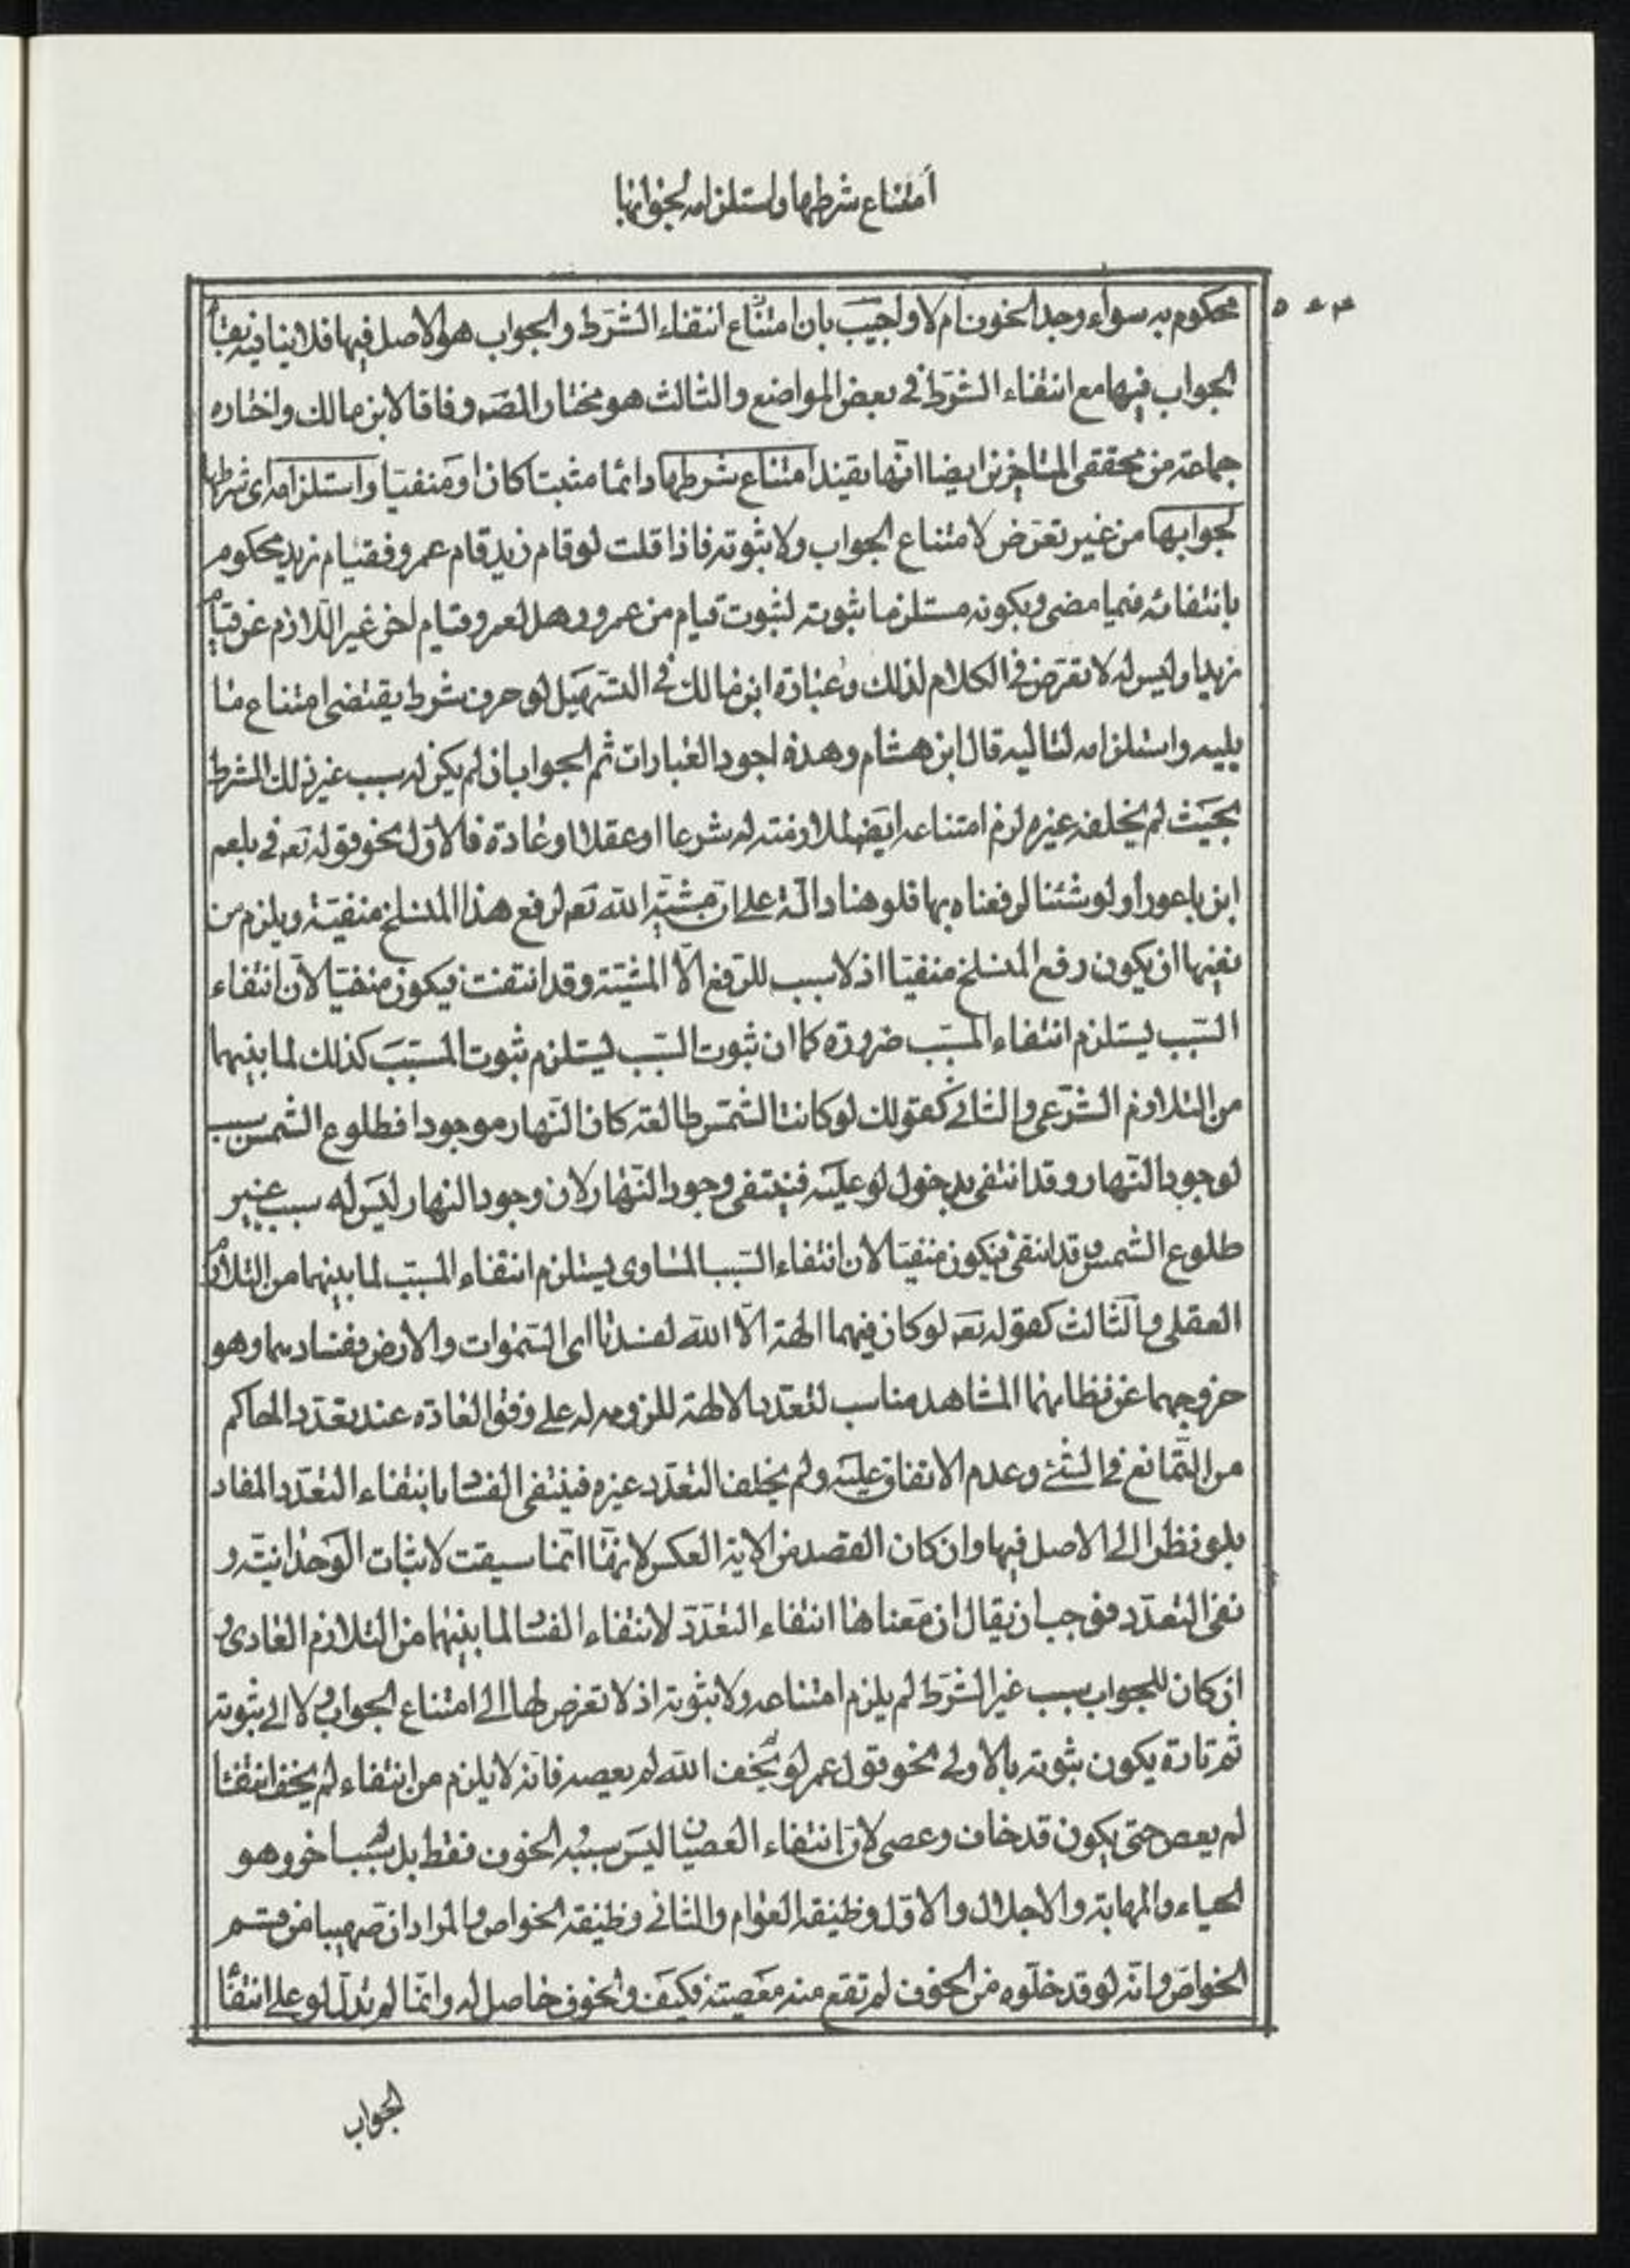 امتناع شرطها واستلزامه لجوابها
محكوم به سواء وجد الخوف ام لا واجيب بان امتناع انتفاء الشرط والجواب هو الاصل فيها فلا ينافيه بقاء
الجواب فيها مع انتفاء الشرط في بعض المواضع والثالث هو مختار المصه وفاقا لابن مالك واختاره
جماعة من محققي المتاخرين ايضا انّها تفيد امتناع شرطها دائما مثبتا كان او منفيّا واستلزامه اى شرطها
لجوابها من غير تعرّض لامتناع الجواب ولا ثبوته فاذا قلت لو قام زيد قام عمرو فقيام زيد محكوم
بانتفائه فيما مضى وبكونه مستلزما ثبوته لثبوت قيام من عمرو وهل لعمرو قيام اخر غير اللازم عن قيام
زيد او ليس له لا تعرّض في الكلام لذلك وعبارة ابن مالك في التسهيل لو حرف شرط يقتضى امتناع ما
يليه واستلزامه لتاليه قال ابن هشام وهذه اجود العبارات ثم الجواب ان لم يكن له سبب غير ذلك الشرط
بحيث لم يخلفه غيره لزم امتناعه ايضا لملازمته له شرعا او عقلا او عادة فالاوّل نحو قوله تعه في بلعم
ابن باعورا ولو شئنا لرفعناه بها فلو هنا دالّة على ان مشيّة الله تعه لرفع هذا المنسلخ منفيّة ويلزم من
نفيها ان يكون رفع المنسلخ منفيّا اذ لا سبب للرّفع الّا المشيّة وقد انتفت فيكون منفيّا لانّ انتفاء
السّبب يستلزم انتفاء المسبّب ضرورة كما ان ثبوت السّبب يستلزم ثبوت المسبّب كذلك لما بينهما
من التلازم الشّرعى والثانى كقولك لو كانت الشّمس طالعة كان النّهار موجودا فطلوع الشّمس سبب
لوجود النّهار وقد انتفى بدخول لو عليه فينتفى وجود النّهار لان وجود النهار ليس له سبب غير
طلوع الشمس وقد انتفى فيكون منفيّا لان انتفاء السّبب المساوى يستلزم انتفاء المسبّب لما بينهما من التلازم
العقلى والثّالث كقوله تعه لو كان فيهما الهة الّا الله لفسدتا اى السّموات والارض وفسادهما وهو
خروجهما عن نظامهما المشاهد مناسب لتعدّد الالهة للزومه له على وفق العادة عند تعدّد الحاكم
من التّمانع في الشّئ وعدم الاتفاق عليه ولم يخلف التعدّد غيره فينتفى الفساد بانتفاء التعدّد المفاد
بلو نظرا الى الاصل فيها وان كان القصد من الاية العكس لانها انّما سيقت لاثبات الوحدانيّة و
نفى التعدّد فوجب ان يقال ان معناها انتفاء التعدّد لانتفاء الفسا لما بينهما من التلازم العادى و
ان كان للجواب سبب غير الشّرط لم يلزم امتناعه ولا ثبوته اذ لا تعرض لها الى امتناع الجواب ولا الى ثبوته
ثم تارة يكون ثبوته بالاولى نحو قول عمر لو لم يخف الله لم يعصه فانّه لا يلزم من انتفاء لم يخف انتفا
لم يعص حتى يكون قد خاف وعصى لانّ انتفاء العصيان ليس سببه الخوف فقط بل له سبب اخر وهو
الحياء والمهابة والاجلال والاوّل وظيفة العوام والثانى وظيفة الخواص والمراد ان صهيبا من قسم
الخواص وانّه لو قد خلّوه من الخوف لم تقع منه معصيته فكيف والخوف حاصل له وانّما لم تدلّ لو على انتفاء
الجواب